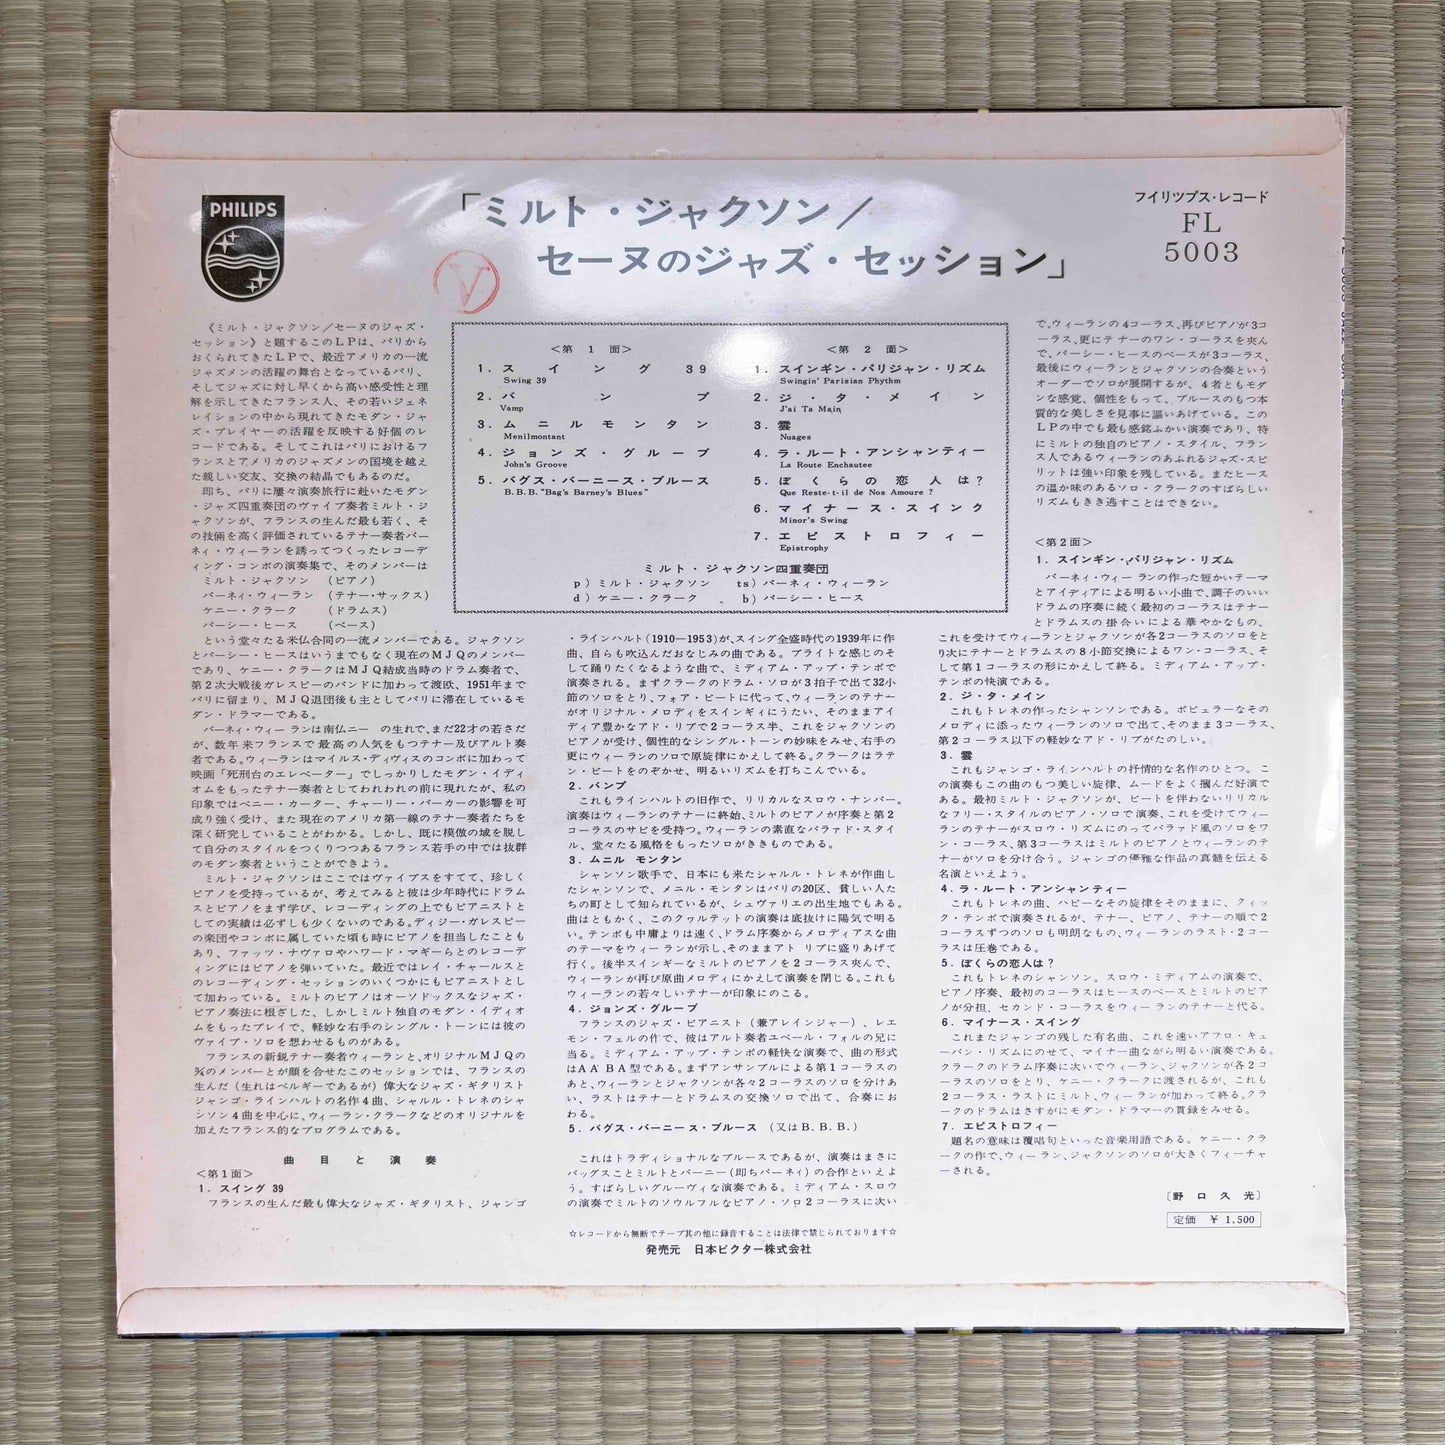 PHILIPS
「ミルト・ジャクソン／
セーヌのジャズ・セッション」
フイリツプス・レコード
FL
5003
V
《ミルト・ジャクソン／セーヌのジャズ・
セッション》と題するこのＬＰは、パリから
おくられてきたＬＰで、最近アメリカの一流
ジャズメンの活躍の舞台となっているパリ、
そしてジャズに対し早くから高い感受性と理
解を示してきたフランス人、その若いジェネ
レイションの中から現れてきたモダン・ジャ
ズ・プレイヤーの活躍を反映する好個のレ
コードである。そしてこれはパリにおけるフ
ランスとアメリカのジャズメンの国境を越え
た親しい交友、交換の結晶でもあるのだ。
即ち、パリに屡々演奏旅行に赴いたモダン
・ジャズ四重奏団のヴァイブ奏者ミルト・ジ
ャクソンが、フランスの生んだ最も若く、そ
の技術を高く評価されているテナー奏者バー
ネィ・ウィーランを誘ってつくったレコーデ
ィング・コンボの演奏集で、そのメンバーは
ミルト・ジャクソン （ピアノ）
バーネィ・ウィーラン （テナー・サックス）
ケニー・クラーク （ドラムス）
パーシー・ヒース （ベース）
という堂々たる米仏合同の一流メンバーである。ジャクソン
とパーシー・ヒースはいうまでもなく現在のＭＪＱのメンバー
であり、ケニー・クラークはＭＪＱ結成当時のドラム奏者で、
第２次大戦後ガレスピーのバンドに加わって渡欧、1951年まで
パリに留まり、ＭＪＱ退団後も主としてパリに滞在しているモ
ダン・ドラマーである。
バーネィ・ウィーランは南仏ニー の生れで、まだ22才の若さだ
が、数年来フランスで最高の人気をもつテナー及びアルト奏
者である。ウィーランはマイルス・ディヴィスのコンボに加わって
映画「死刑台のエレベーター」でしっかりしたモダン・イディ
オムをもったテナー奏者としてわれわれの前に現れたが、私の
印象ではベニー・カーター、チャーリー・パーカーの影響を可
成り強く受け、また現在のアメリカ第一線のテナー奏者たちを
深く研究していることがわかる。しかし、既に模倣の域を脱し
て自分のスタイルをつくりつつあるフランス若手の中では抜群
のモダン奏者ということができよう。
ミルト・ジャクソンはここではヴァイブスをすてて、珍しく
ピアノを受持っているが、考えてみると彼は少年時代にドラム
スとピアノをまず学び、レコーディングの上でもピアニストと
しての実績は必ずしも少くないのである。ディジー・ガレスピー
の楽団やコンボに属していた頃も時にピアノを担当したことも
あり、ファッツ・ナヴァロやハワード・マギーらとのレコーデ
ィングにはピアノを弾いていた。最近ではレイ・チャールスと
のレコーディング・セッションのいくつかにもピアニストとし
て加わっている。ミルトのピアノはオーソドックスなジャズ・
ピアノ奏法に根ざした、しかしミルト独自のモダン・イディオ
ムをもったプレイで、軽妙な右手のシングル・トーンには彼の
ヴァイブ・ソロを想わせるものがある。
フランスの新鋭テナー奏者ウィーランと、オリジナルＭＪＱの
¾のメンバーとが顔を合せたこのセッションでは、フランスの
生んだ（生れはベルギーであるが）偉大なジャズ・ギタリスト
ジャンゴ・ラインハルトの名作４曲、シャルル・トレネのシャ
ンソン４曲を中心に、ウィーラン・クラークなどのオリジナルを
加えたフランス的なプログラムである。
曲目と演奏
＜第１面＞
１．スイング 39
フランスの生んだ最も偉大なジャズ・ギタリスト、ジャンゴ
＜第１面＞
1．スイング39
Swing 39
2．バンプ
Vamp
3．ムニルモンタン
Menilmontant
4．ジョンズ・グルーブ
John's Groove
5．バグス・バーニース・ブルース
B.B.B. "Bag's Barney's Blues"
＜第２面＞
1．スインギン・パリジャン・リズム
Swingin' Parisian Phythm
2．ジ・タ・メイン
J'ai Ta Main
3．雲
Nuages
4．ラ・ルート・アンシャンティー
La Route Enchautee
5．ぼくらの恋人は？
Que Reste-t-il de Nos Amoure ?
6．マイナース・スインク
Minor's Swing
7．エピストロフィー
Epistrophy
ミルト・ジャクソン四重奏団
p）ミルト・ジャクソン ts）バーネィ・ウィーラン
d）ケニー・クラーク b）パーシー・ヒース
・ラインハルト(1910―1953)が、スイング全盛時代の1939年に作
曲、自らも吹込んだおなじみの曲である。ブライトな感じのそ
して踊りたくなるような曲で、ミディアム・アップ・テンポで
演奏される。まずクラークのドラム・ソロが３拍子で出て32小
節のソロをとり、フォア・ビートに代って、ウィーランのテナー
がオリジナル・メロディをスインギィにうたい、そのままアイ
ディア豊かなアド・リブで２コーラス半、これをジャクソンの
ピアノが受け、個性的なシングル・トーンの妙味をみせ、右手の
更にウィーランのソロで原旋律にかえして終る。クラークはラテ
ン・ビートをのぞかせ、明るいリズムを打ちこんでいる。
２．バンプ
これもラインハルトの旧作で、リリカルなスロウ・ナンバー。
演奏はウィーランのテナーに終始、ミルトのピアノが序奏と第２
コーラスのサビを受持つ。ウィーランの素直なバラァド・スタイ
ル、堂々たる風格をもったソロがききものである。
３．ムニル モンタン
シャンソン歌手で、日本にも来たシャルル・トレネが作曲し
たシャンソンで、メニル・モンタンはパリの20区、貧しい人た
ちの町として知られているが、シュヴァリエの出生地でもある。
曲はともかく、このクヮルテットの演奏は底抜けに陽気で明る
い。テンポも中庸よりは速く、ドラム序奏からメロディアスな曲
のテーマをウィーランが示し、そのままアト リブに盛りあげて
行く。後半スインギーなミルトのピアノを２コーラス夾んで、
ウィーランが再び原曲メロディにかえして演奏を閉じる。これも
ウィーランの若々しいテナーが印象にのこる。
４．ジョンズ・グルーブ
フランスのジャズ・ピアニスト（兼アレインジャー）、レエ
モン・フェルの作で、彼はアルト奏者ユベール・フォルの兄に
当る。ミディアム・アップ・テンポの軽快な演奏で、曲の形式
はAA'BA型である。まずアンサンブルによる第１コーラスの
あと、ウィーランとジャクソンが各々２コーラスのソロを分けあ
い、ラストはテナーとドラムスの交換ソロで出て、合奏におわ
る。
５．バグス・バーニース・ブルース （又はＢ.Ｂ.Ｂ.）
これはトラディショナルなブルースであるが、演奏はまさに
バッグスことミルトとバーニー（即ちバーネィ）の合作といえよ
う。すばらしいグルーヴィな演奏である。ミディアム・スロウ
の演奏でミルトのソウルフルなピアノ・ソロ２コーラスに次い
☆レコードから無断でテープ其の他に録音することは法律で禁じられております☆
発売元 日本ビクター株式会社
で、ウィーランの４コーラス、再びピアノが３コ
ーラス、更にテナーのワン・コーラスを夾ん
で、パーシー・ヒースのベースが３コーラス、
最後にウィーランとジャクソンの合奏という
オーダーでソロが展開するが、４者ともモダ
ンな感覚、個性をもって、ブルースのもつ本
質的な美しさを見事に謳いあげている。この
ＬＰの中でも最も感銘ふかい演奏であり、特
にミルトの独自のピアノ・スタイル、フラン
ス人であるウィーランのあふれるジャズ・スピ
リットは強い印象を残している。またヒース
の温か味のあるソロ・クラークのすばらしい
リズムもきき逃すことはできない。
＜第２面＞
１．スインギン・パリジャン・リズム
バーネィ・ウィーランの作った短かいテーマ
とアイディアによる明るい小曲で、調子のいい
ドラムの序奏に続く最初のコーラスはテナー
とドラムスの掛合いによる華やかなもの、
これを受けてウィーランとジャクソンが各２コーラスのソロをと
り次にテナーとドラムスの８小節交換によるワン・コーラス、そ
して第１コーラスの形にかえして終る。ミディアム・アップ・
テンポの快演である。
２．ジ・タ・メイン
これもトレネの作ったシャンソンである。ポピュラーなその
メロディに添ったウィーランのソロで出て、そのまま３コーラス、
第２コーラス以下の軽妙なアド・リブがたのしい。
３．雲
これもジャンゴ・ラインハルトの抒情的な名作のひとつ。こ
の演奏もこの曲のもつ美しい旋律、ムードをよく摑んだ好演で
ある。最初ミルト・ジャクソンが、ビートを伴わないリリカル
なフリー・スタイルのピアノ・ソロで演奏、これを受けてウィー
ランのテナーがスロウ・リズムにのってバラァド風のソロをワ
ン・コーラス、第３コーラスはミルトのピアノとウィーランのテ
ナーがソロを分け合う。ジャンゴの優雅な作品の真髄を伝える
名演といえよう。
４．ラ・ルート・アンシャンティー
これもトレネの曲、ハピーなその旋律をそのままに、クィッ
ク・テンポで演奏されるが、テナー、ピアノ、テナーの順で２
コーラスずつのソロも明朗なもの、ウィーランのラスト・２コー
ラスは圧巻である。
５．ぼくらの恋人は？
これもトレネのシャンソン。スロウ・ミディアムの演奏で、
ピアノ序奏、最初のコーラスはヒースのベースとミルトのピア
ノが分担、セカンド・コーラスをウィーランのテナーと代る。
６．マイナース・スイング
これまたジャンゴの残した有名曲、これを速いアフロ・キュ
ーバン・リズムにのせて、マイナー曲ながら明るい演奏である。
クラークのドラム序奏に次いでウィーラン、ジャクソンが各２コ
ーラスのソロをとり、ケニー・クラークに渡されるが、これも
２コーラス・ラストにミルト、ウィーランが加わって終る。クラ
ークのドラムはさすがにモダン・ドラマーの貫録をみせる。
７．エピストロフィー
題名の意味は覆唱句といった音楽用語である。ケニー・クラ
ークの作で、ウィーラン、ジャクソンのソロが大きくフィーチャ
ーされる。
〔野口久光〕
定価 ￥1,500